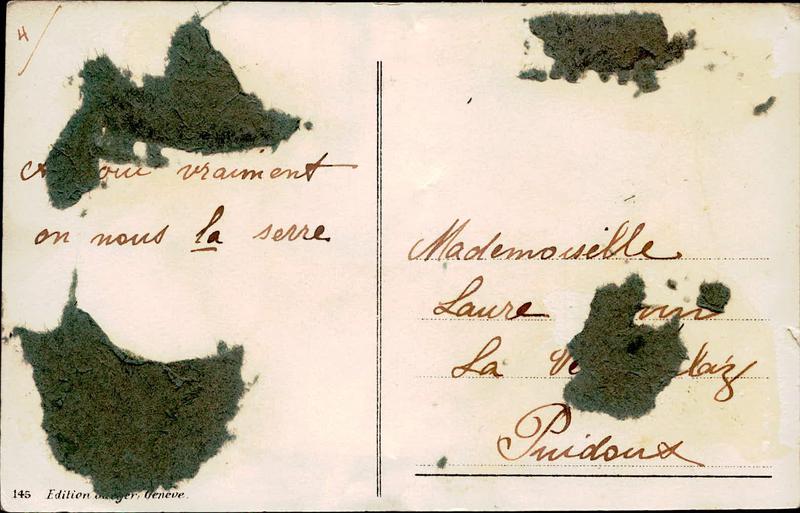 4
oui vraiment
on nous la serre
Mademoiselle
Laure
La
Puidoux
145 Edition Jaeger, Genève.